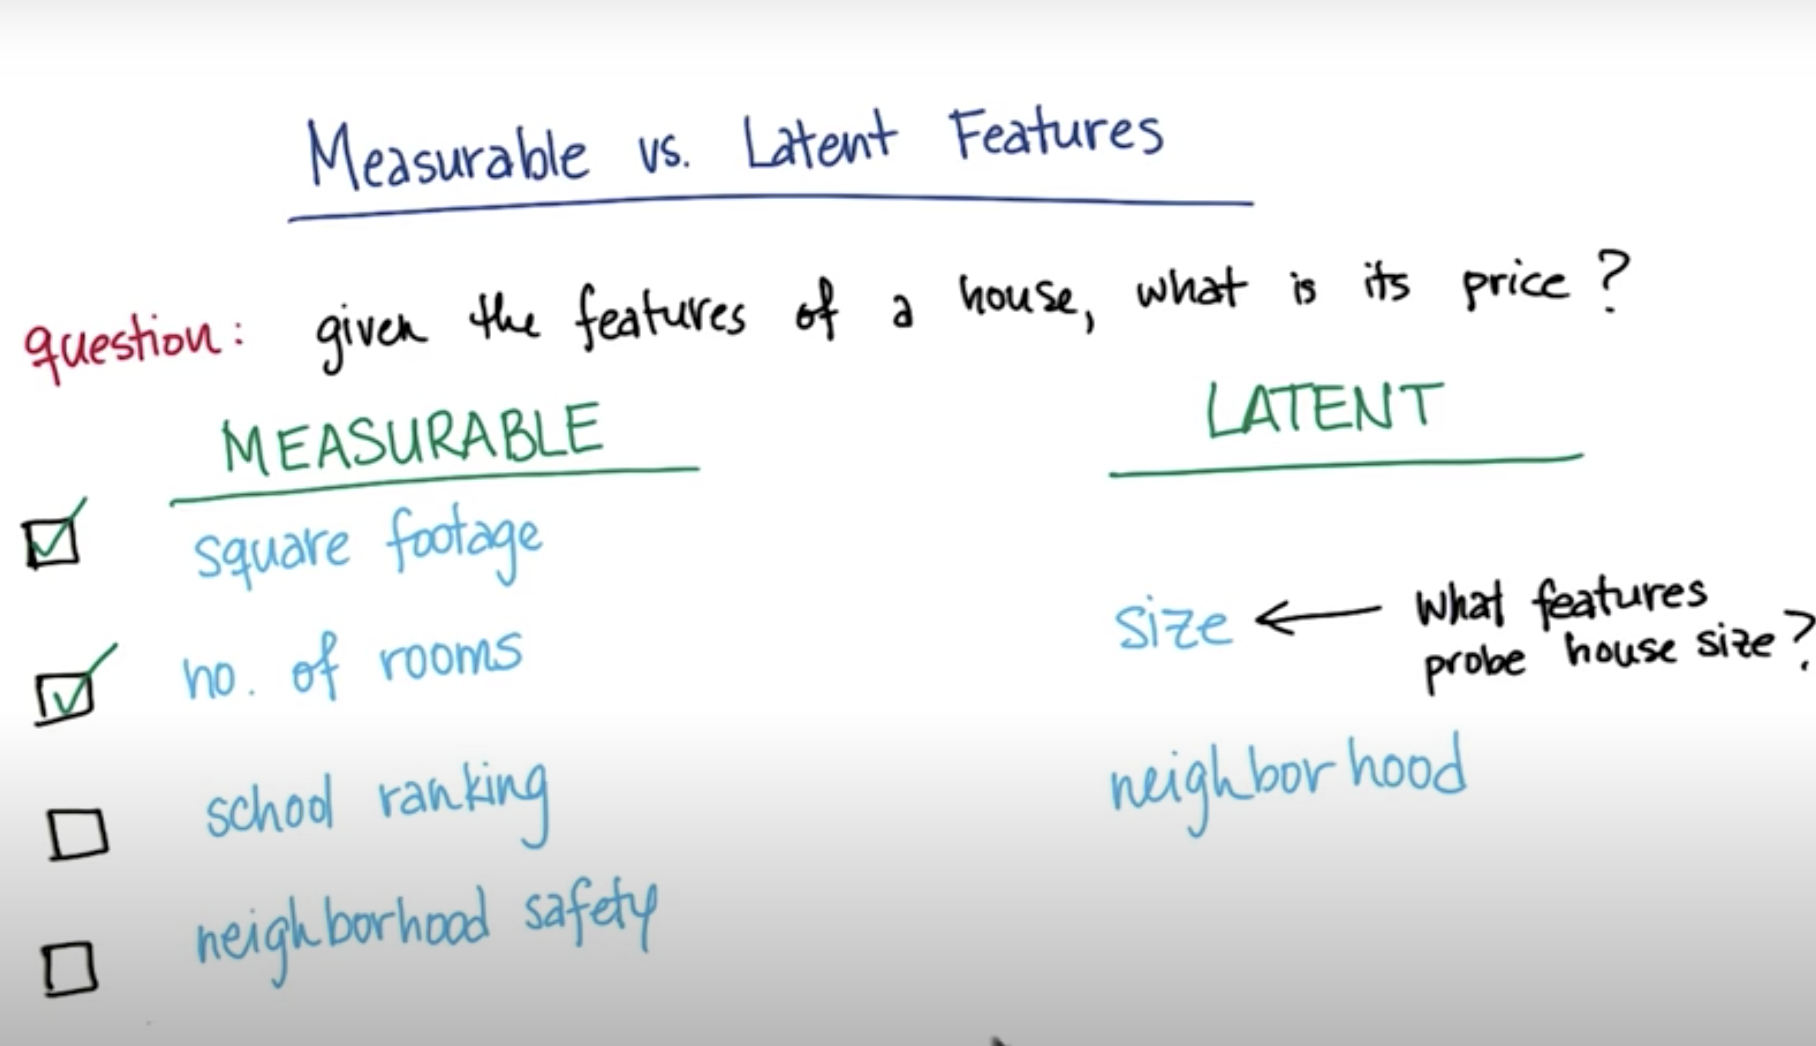 Measurable vs. Latent Features
question: given the features of a house, what is its price?
MEASURABLE
square footage
no. of rooms
school ranking
neighborhood safety
LATENT
size ← what features
probe house size?
neighborhood